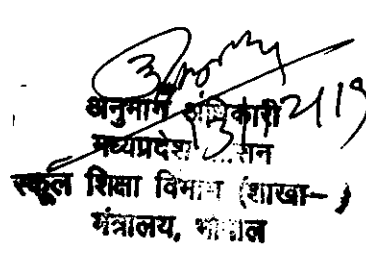 अनुभाग अधिकारी
मध्यप्रदेश शासन
स्कूल शिक्षा विभाग (शाखा- )
मंत्रालय, भोपाल